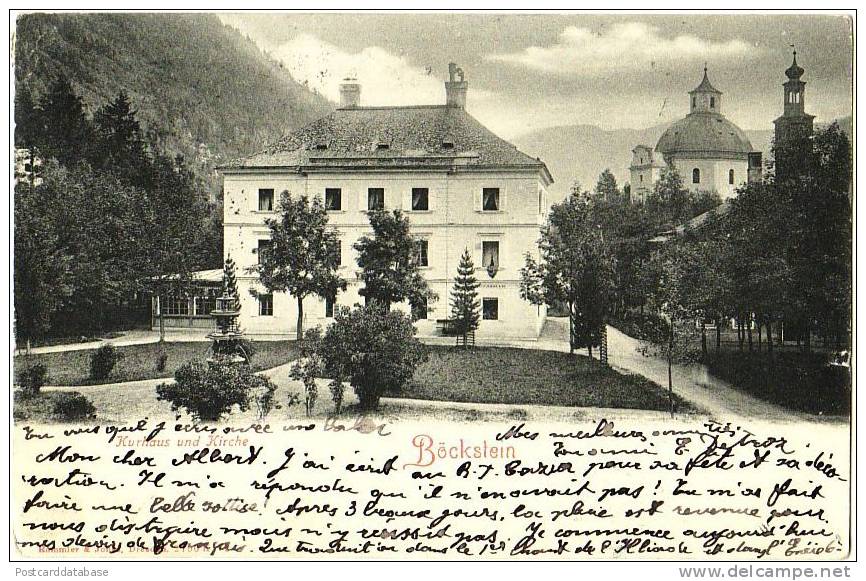 Tu vois que j'écris avec une
Kurhaus und Kirche
Böckstein
Mes meilleures amitiés
Mon cher Albert. J'ai écrit au R. P. pour sa fête et sa déco-
ration. Il m'a répondu qu'il n'en avait pas! Tu m'as fait
faire une belle sottise! Après 3 beaux jours, la pluie est revenue pour
nous distraire mais n'y réussit pas. Je commence aujourd'hui
mes devoirs de français. Une traduction dans le 1er chant de l'Iliade et dans
Römmler & Jonas, Dresden.
Postcarddatabase
postcards.delcampe.net